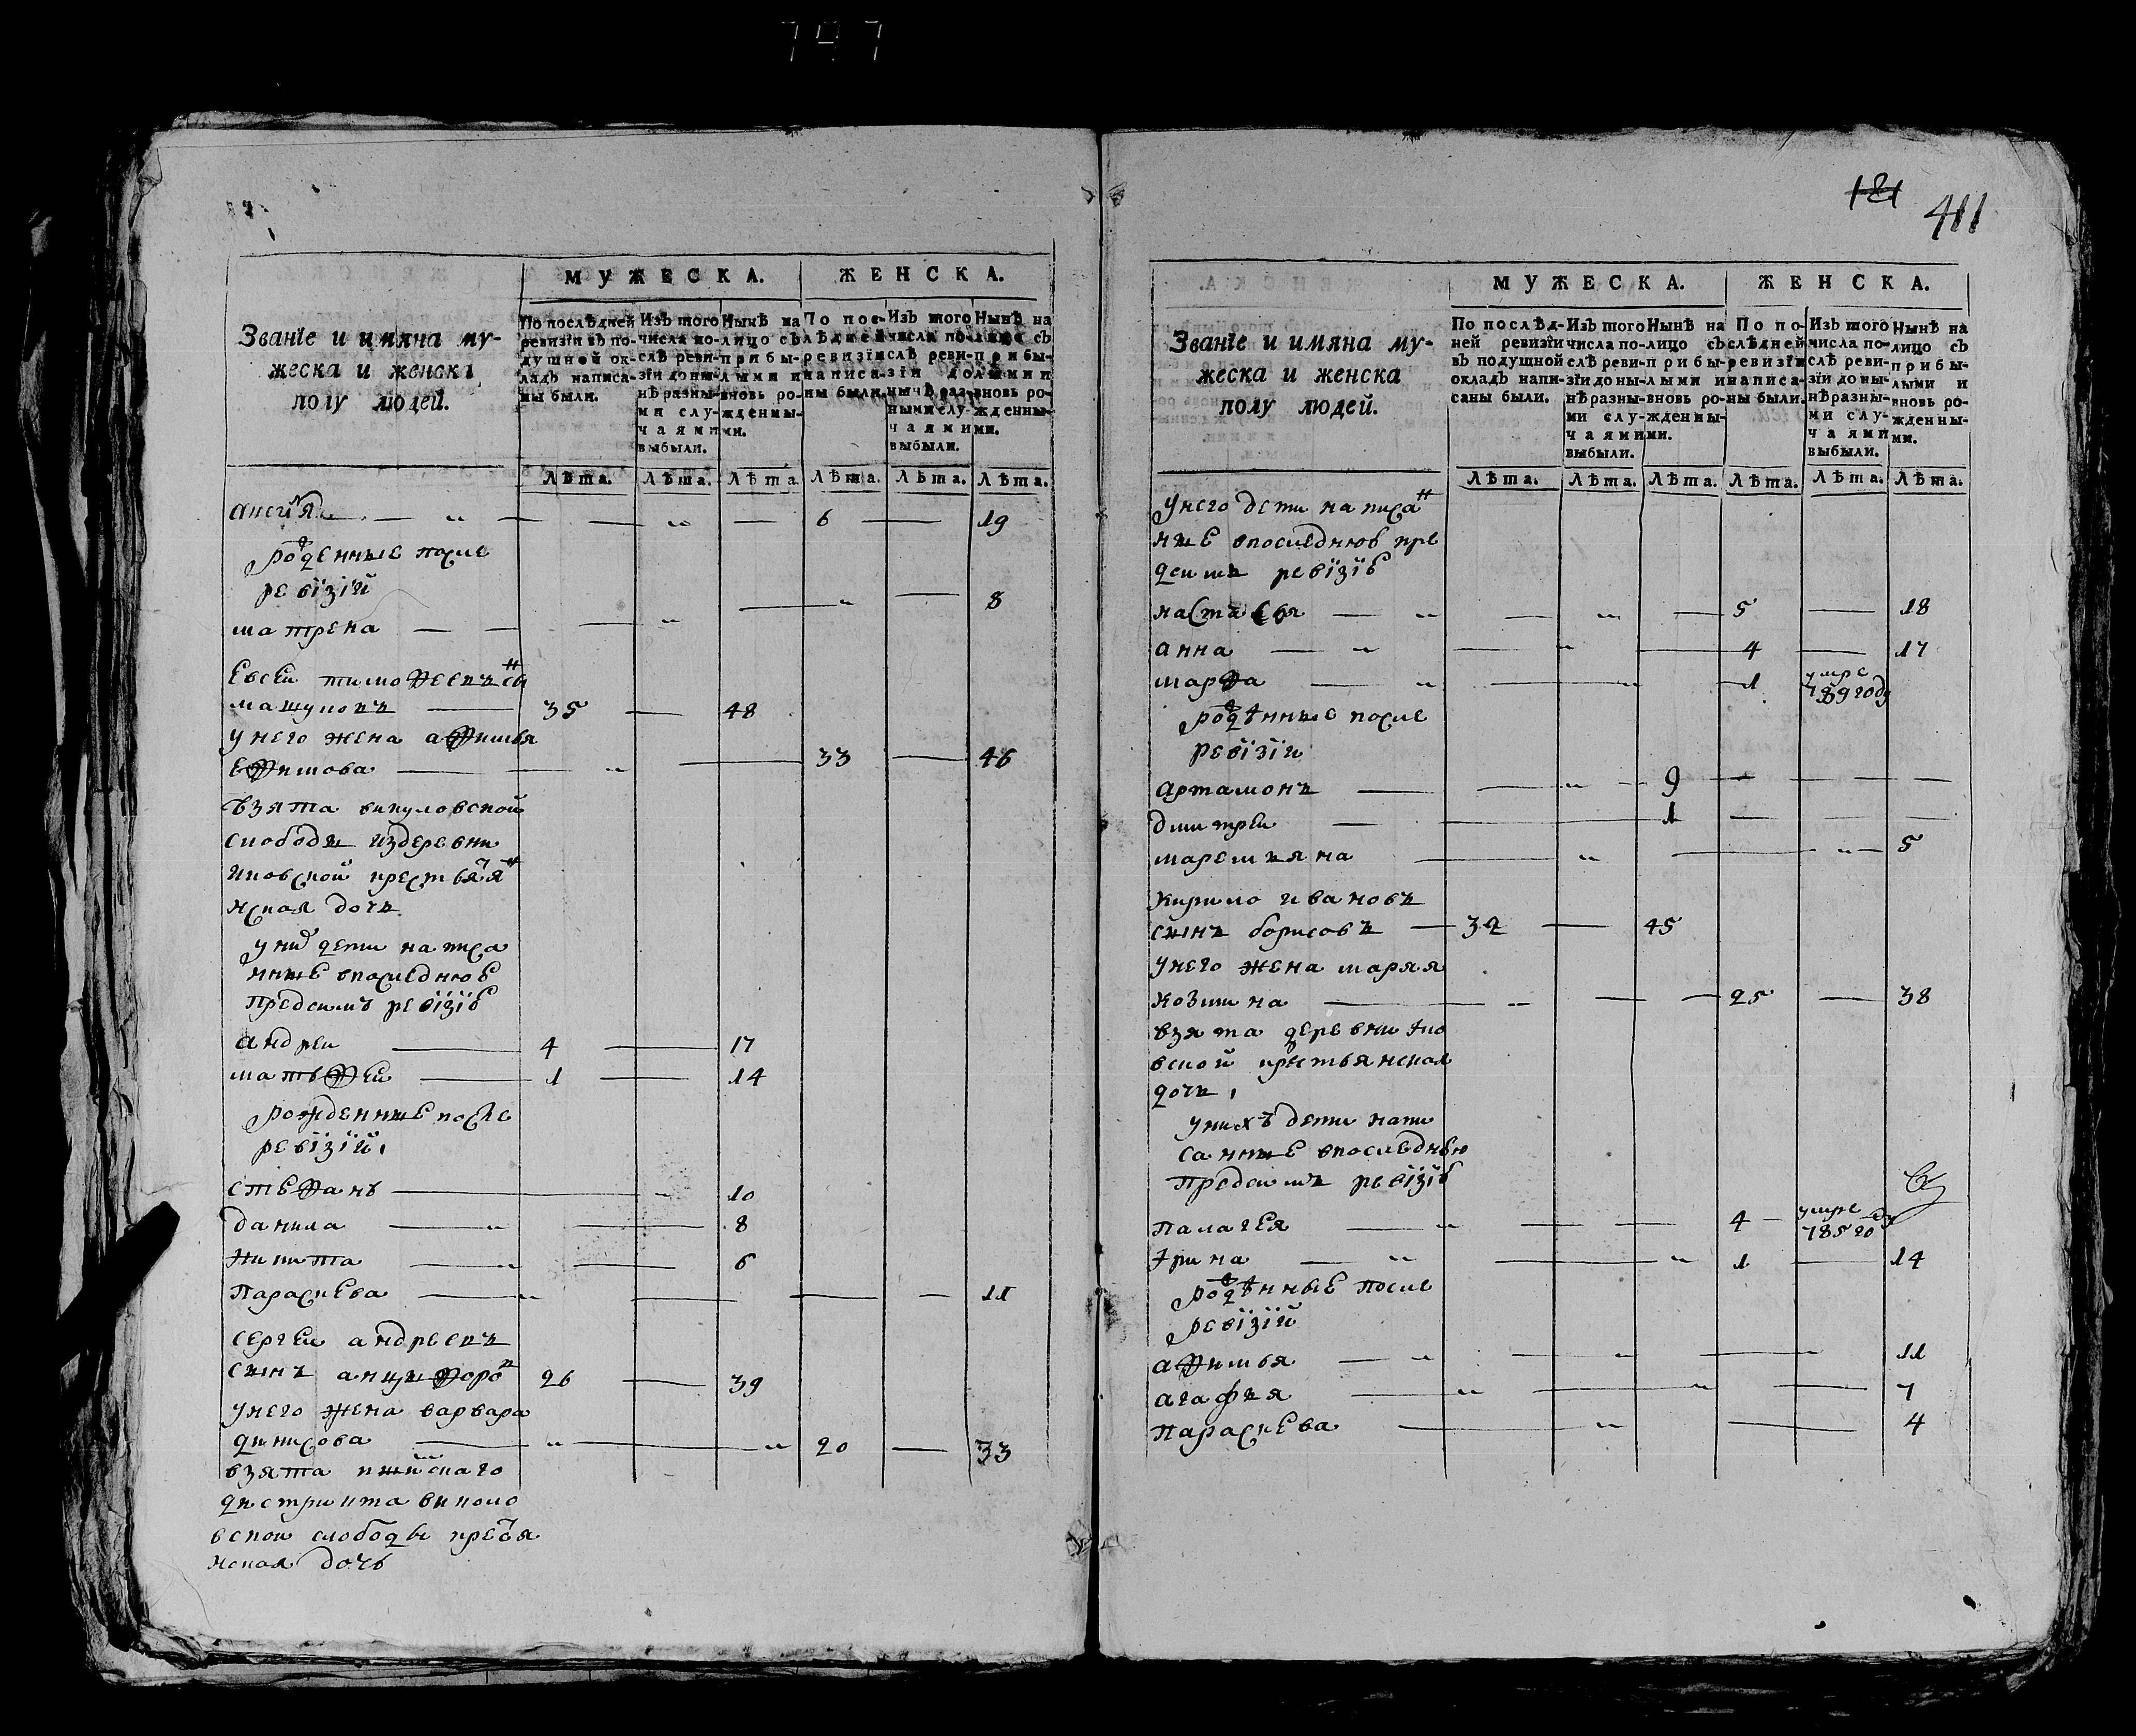 797
МУЖЕСКА. ЖЕНСКА.
Званїе и имяна му-
жеска и женска
полу людей.
По послѣдней ревизїи въ по-душной ок-ладъ написа-ны были.
Изъ того числа по-слѣ реви-зїи доны-нѣ разны-ми слу-чаями выбыли.
Нынѣ на лицо съ прибы-лыми и вновь ро-жденны-ми.
По пос-лѣдней ревизїи написа-ны были.
Изъ того числа по-слѣ реви-зїи до нынѣ раз-ными слу-чаями выбыли.
Нынѣ на лице съ прибы-лыми и вновь ро-жденны-ми.
Лѣта. Лѣта. Лѣта. Лѣта. Лѣта. Лѣта.
6 19
рожденные после
ревїзїй
матрена 8
Евсеи тимофеевъ сын
машуковъ 35 48
унего жена афимья
Ефимова 33 46
взята викуловской
слободы издеревни
нская дочь
уних дети написа
нные впоследнюе
предсимъ ревїзїе
андреи 4 17
матфеи 1 14
рожденные после
ревїзїй
стефанъ 10
данила 8
никита 6
параскева 11
сергеи андреевъ
сынъ 26 39
унего жена варвара
денисова 20 33
взята ишимскаго
дистрикта викуло
вскои слободы кресья
нская дочь
121
411
МУЖЕСКА. ЖЕНСКА.
Званїе и имяна му-
жеска и женска
полу людей.
По послѣд-ней ревизїи въ подушной окладъ напи-саны были.
Изъ того числа по-слѣ реви-зїи доны-нѣ разны-ми слу-чаями выбыли.
Нынѣ на лицо съ прибы-лыми и вновь ро-жденны-ми.
По по-слѣдней ревизїи написа-ны были.
Изъ того числа по-слѣ реви-зїи доны-нѣ разны-ми слу-чаями выбыли.
Нынѣ на лицо съ прибы-лыми и вновь ро-жденны-ми.
Лѣта. Лѣта. Лѣта. Лѣта. Лѣта. Лѣта.
унего дети написан
ные впоследнюю пре
десимъ ревїзїе
настасья 5 18
анна 4 17
марфа 1 умре 789 году
рожденные после
ревїзїи
артамонъ 9
дмитреи 1
маремьяна 5
кирило ивановъ
сынъ борисовъ 32 45
унего жена марья
козмина 25 38
взята деревни ило
вской крестьянская
дочь
унихъ дети напи
санные впоследнею
предсимъ ревїзїе
палагея 4 умре 785 году
ирина 1 14
рожденные после
ревїзїй
афимья 11
агафья 7
параскева 4